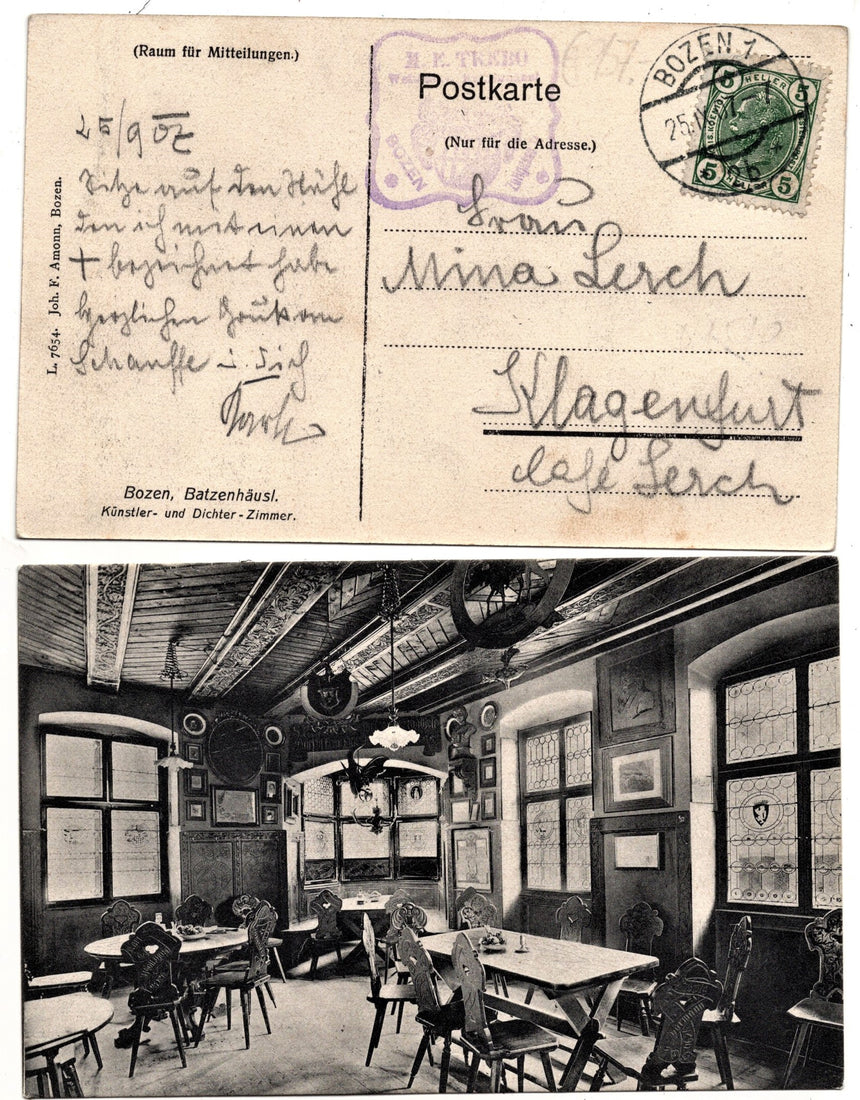 (Raum für Mitteilungen.)
25/9 07
Sitze auf den Stühl
den ich mit einen
+ bezeichnet habe
herzlichen Gruß von
Schauffe u. Dich
L. 7654. Joh. F. Amonn, Bozen.
Bozen, Batzenhäusl.
Künstler- und Dichter-Zimmer.
M. E. TREBO
BOZEN
Postkarte
(Nur für die Adresse.)
BOZEN 1
5 HELLER 5
5 5
Frau
Mina Lerch
Klagenfurt
Cafe Lerch
€ 17.-